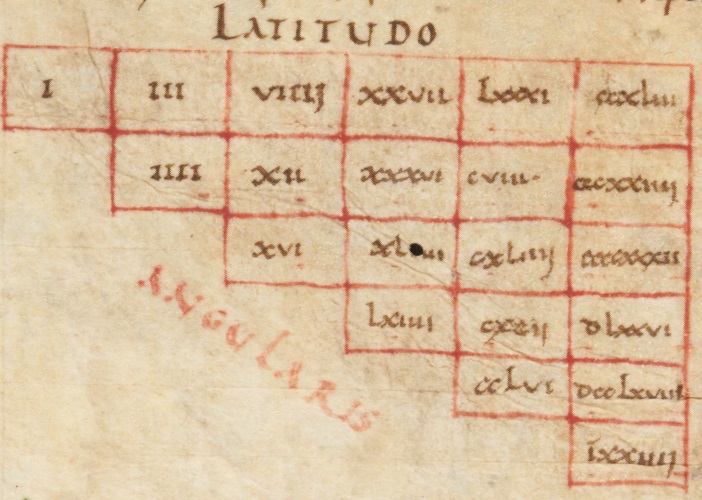 LATITUDO
I III VIIIJ XXVII LXXXI CCXLIII
IIII XII XXXVI CVIII· CCCXXIIIJ
XVI CXLIIIJ CCCCXXXII
LXIIII CXCIJ DLXXVI
CCLVI DCCLXVIII
ĪXXIIIJ
ANGULARIS